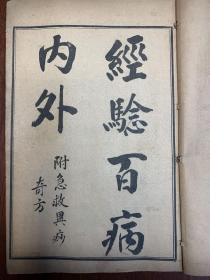 經驗百病
內外
附急救異病
奇方